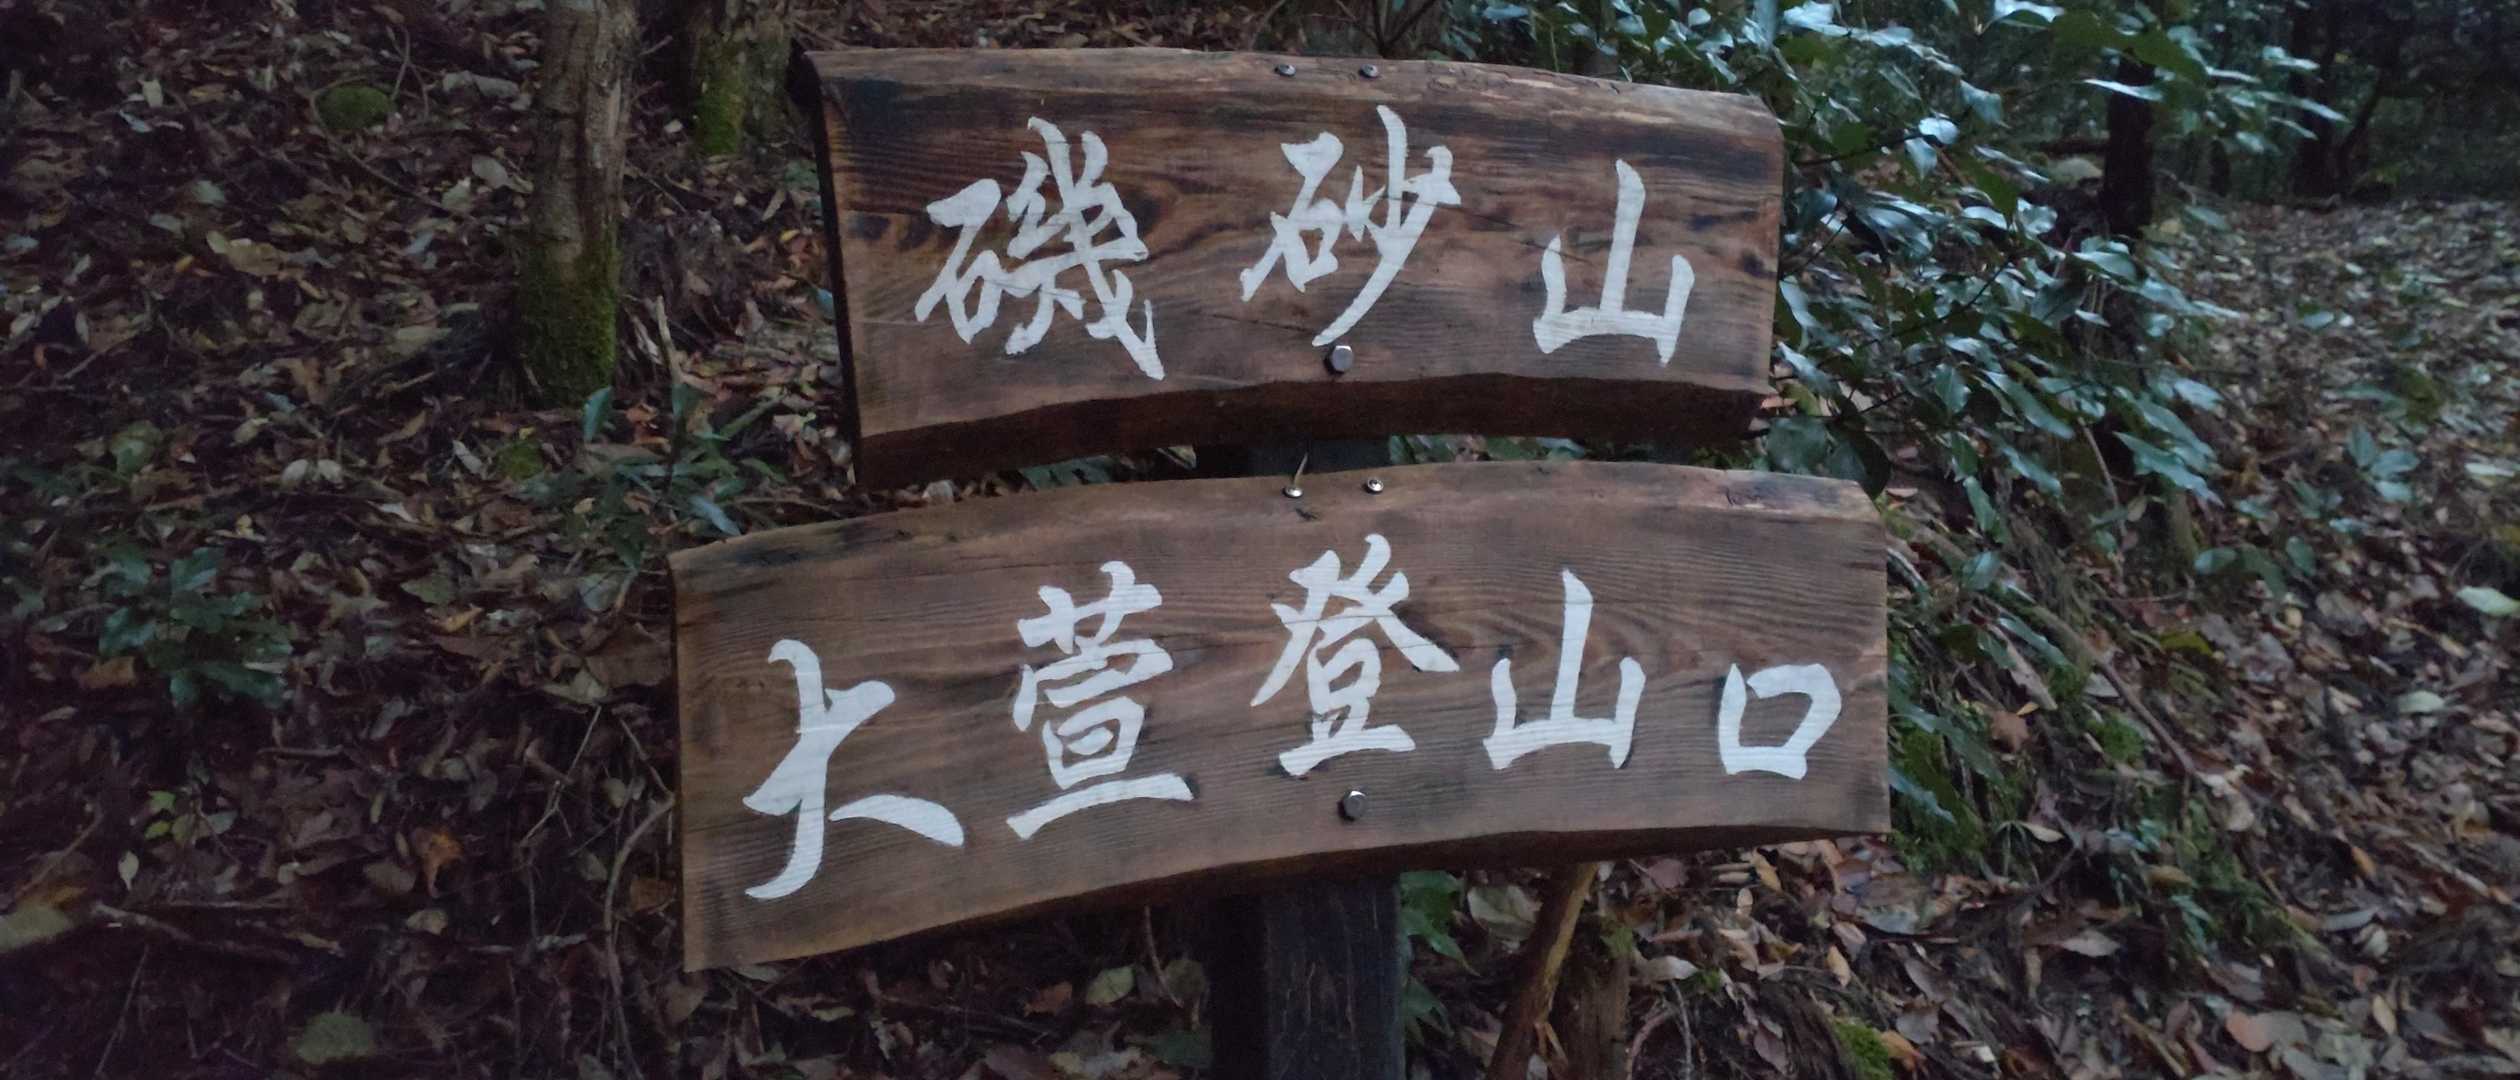 磯砂山
大萱登山口